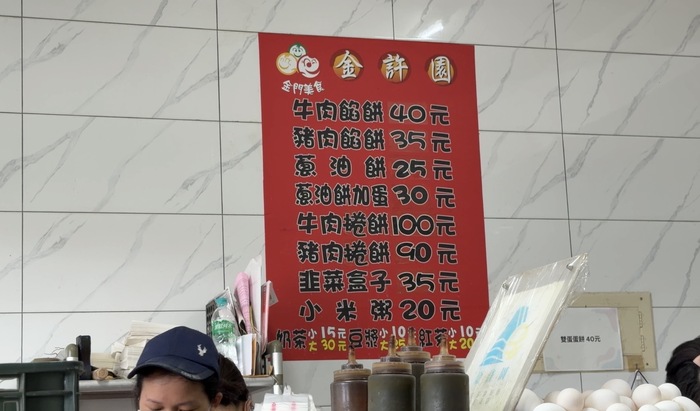 金許園
金門美食
牛肉餡餅40元
豬肉餡餅35元
蔥油餅25元
蔥油餅加蛋30元
牛肉捲餅100元
豬肉捲餅90元
韭菜盒子35元
小米粥20元
奶茶小15元大30元豆漿小10紅茶小10大20
雙蛋蛋餅40元